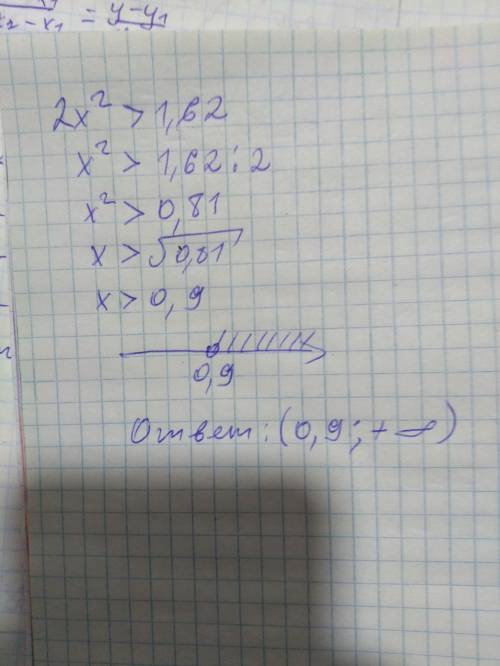 x₂-x₁ = y-y₁
2x² > 1,62
x² > 1,62 : 2
x² > 0,81
x > √0,81
x > 0,9
0,9
Ответ: (0,9; +∞)